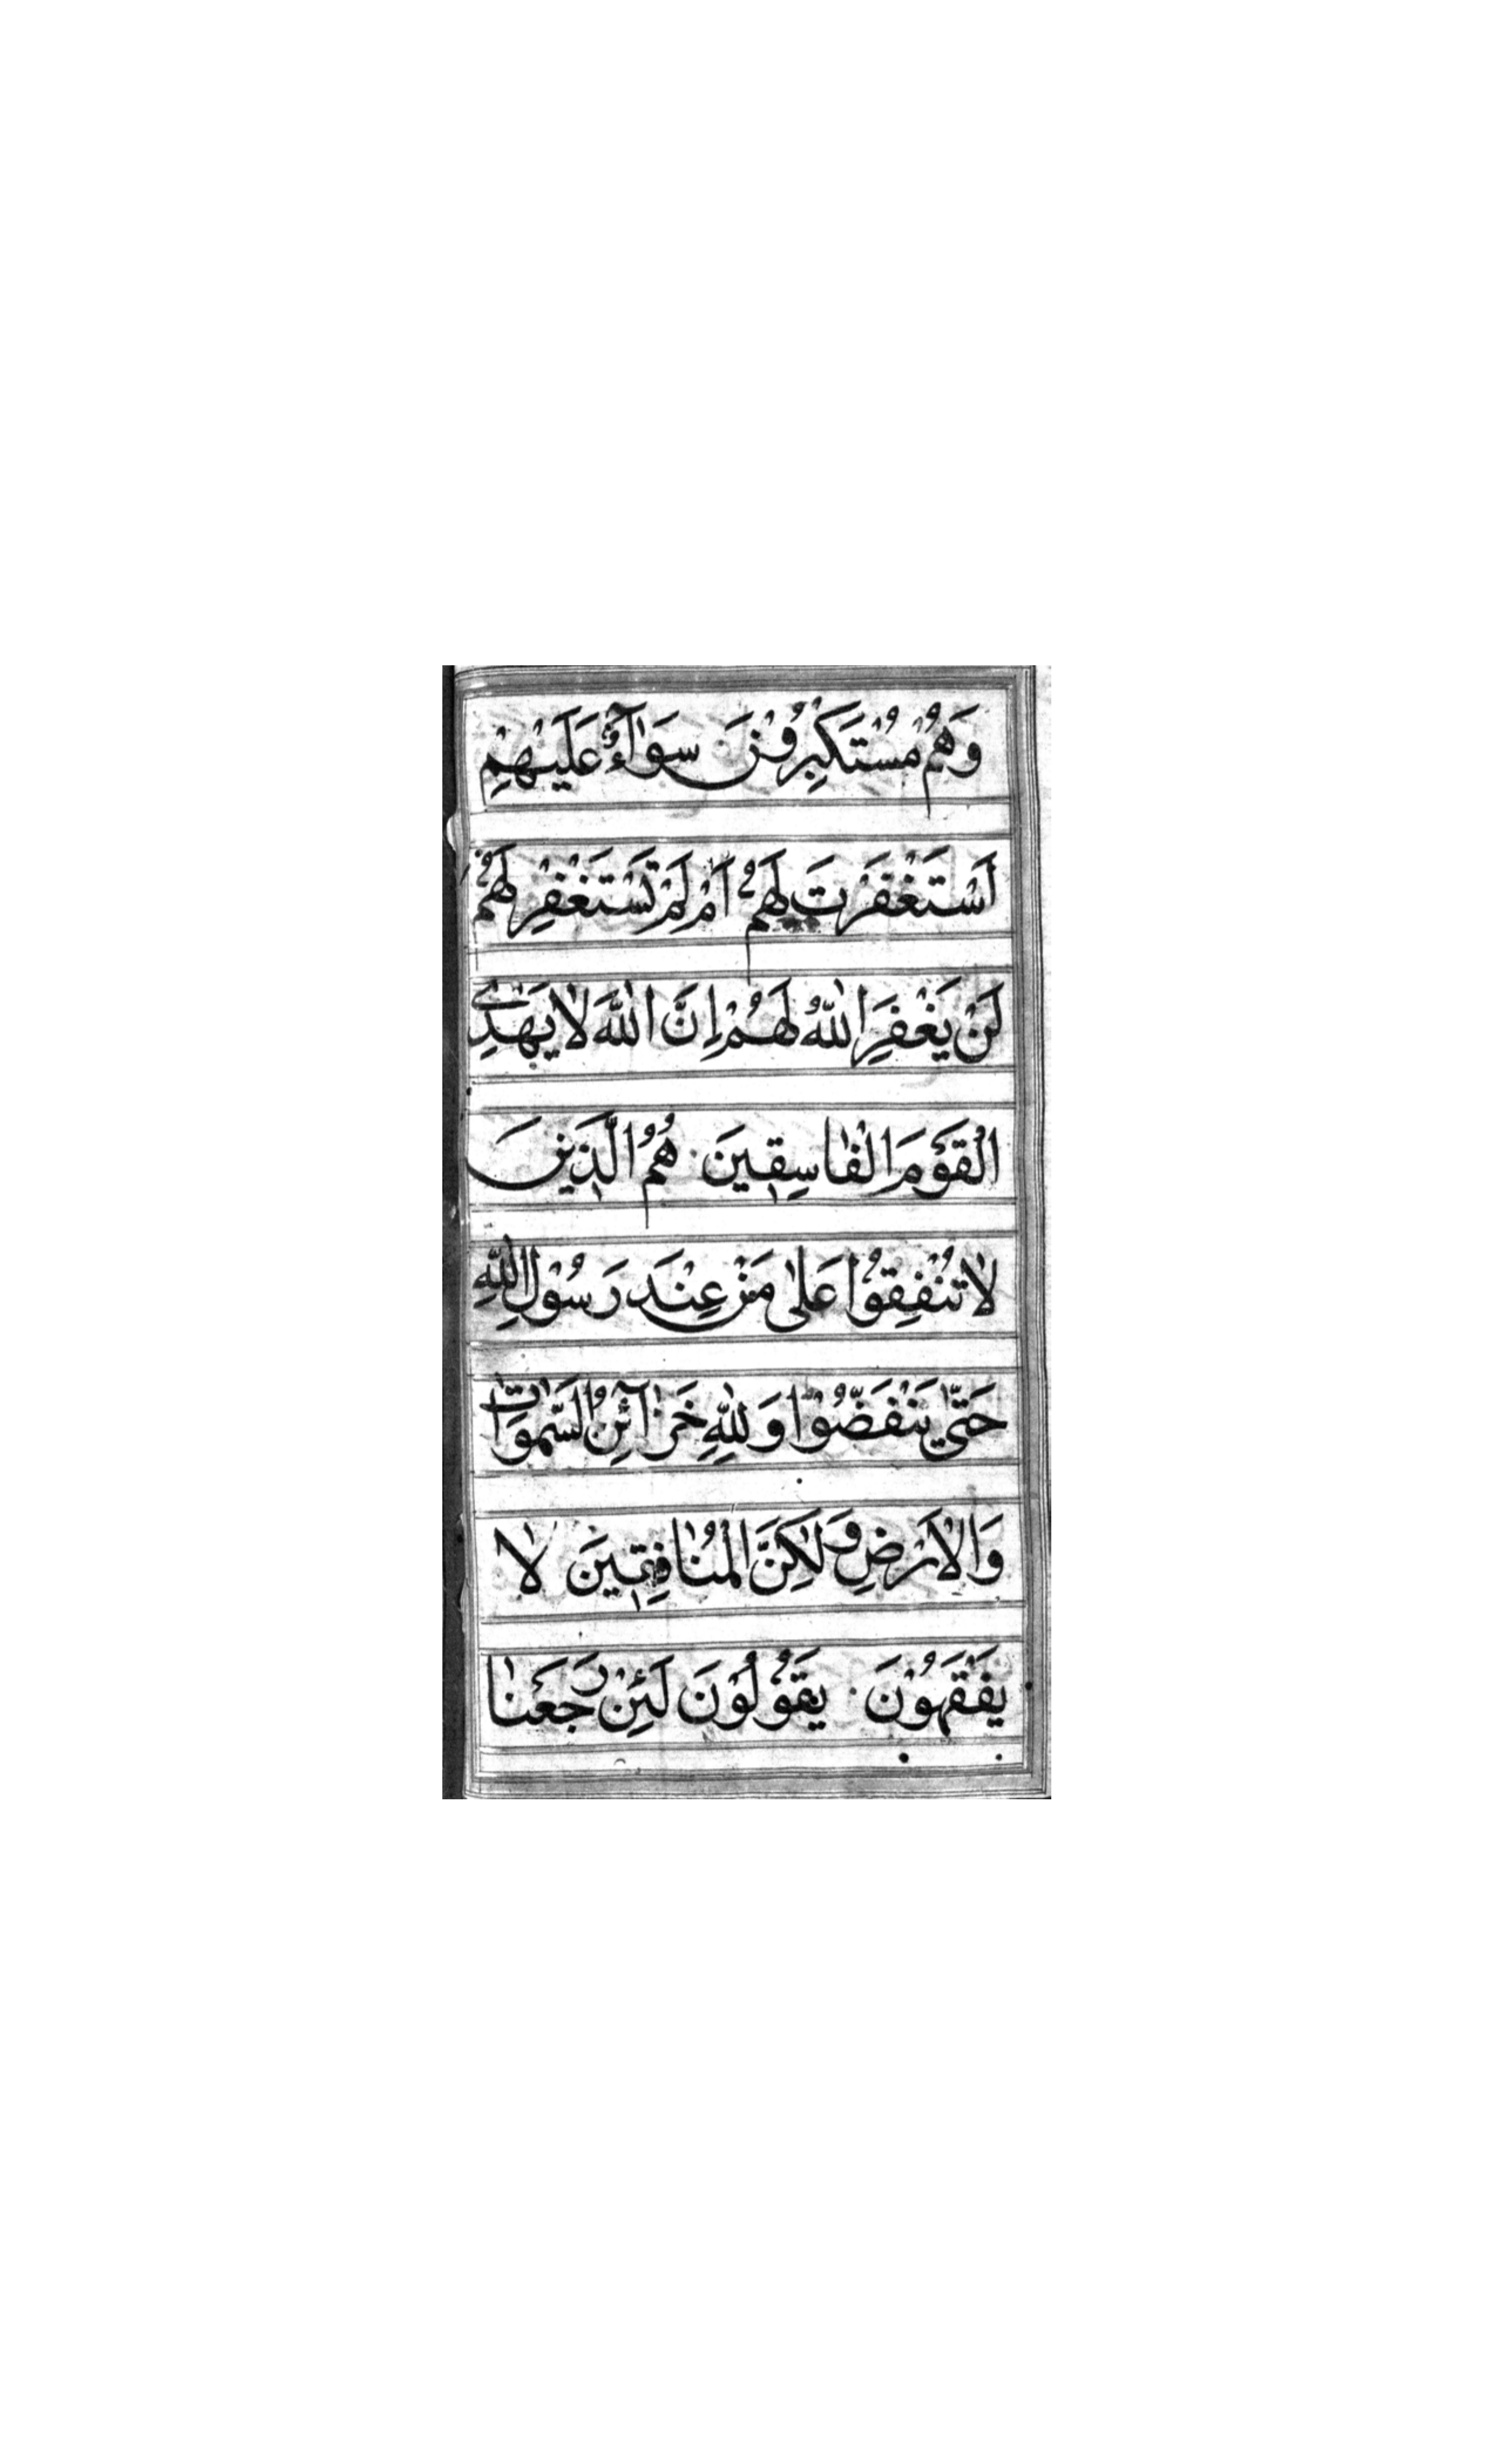 وَهُمْ مُسْتَكْبِرُوْنَ سَوَآءٌ عَلَيْهِمْ
اَسْتَغْفَرْتَ لَهُمْ اَمْ لَمْ تَسْتَغْفِرْ لَهُمْ
لَنْ يَغْفِرَ اللّٰهُ لَهُمْ اِنَّ اللّٰهَ لَا يَهْدِى
الْقَوْمَ الْفَاسِقِينَ هُمُ الَّذِينَ
لَا تُنْفِقُوا عَلٰى مَنْ عِنْدَ رَسُوْلِ اللّٰهِ
حَتّٰى يَنْفَضُّوْا وَلِلّٰهِ خَزَآئِنُ السَّمٰوَاتِ
وَالْاَرْضِ وَلٰكِنَّ الْمُنَافِقِينَ لَا
يَفْقَهُوْنَ يَقُوْلُوْنَ لَئِنْ رَجَعْنَا